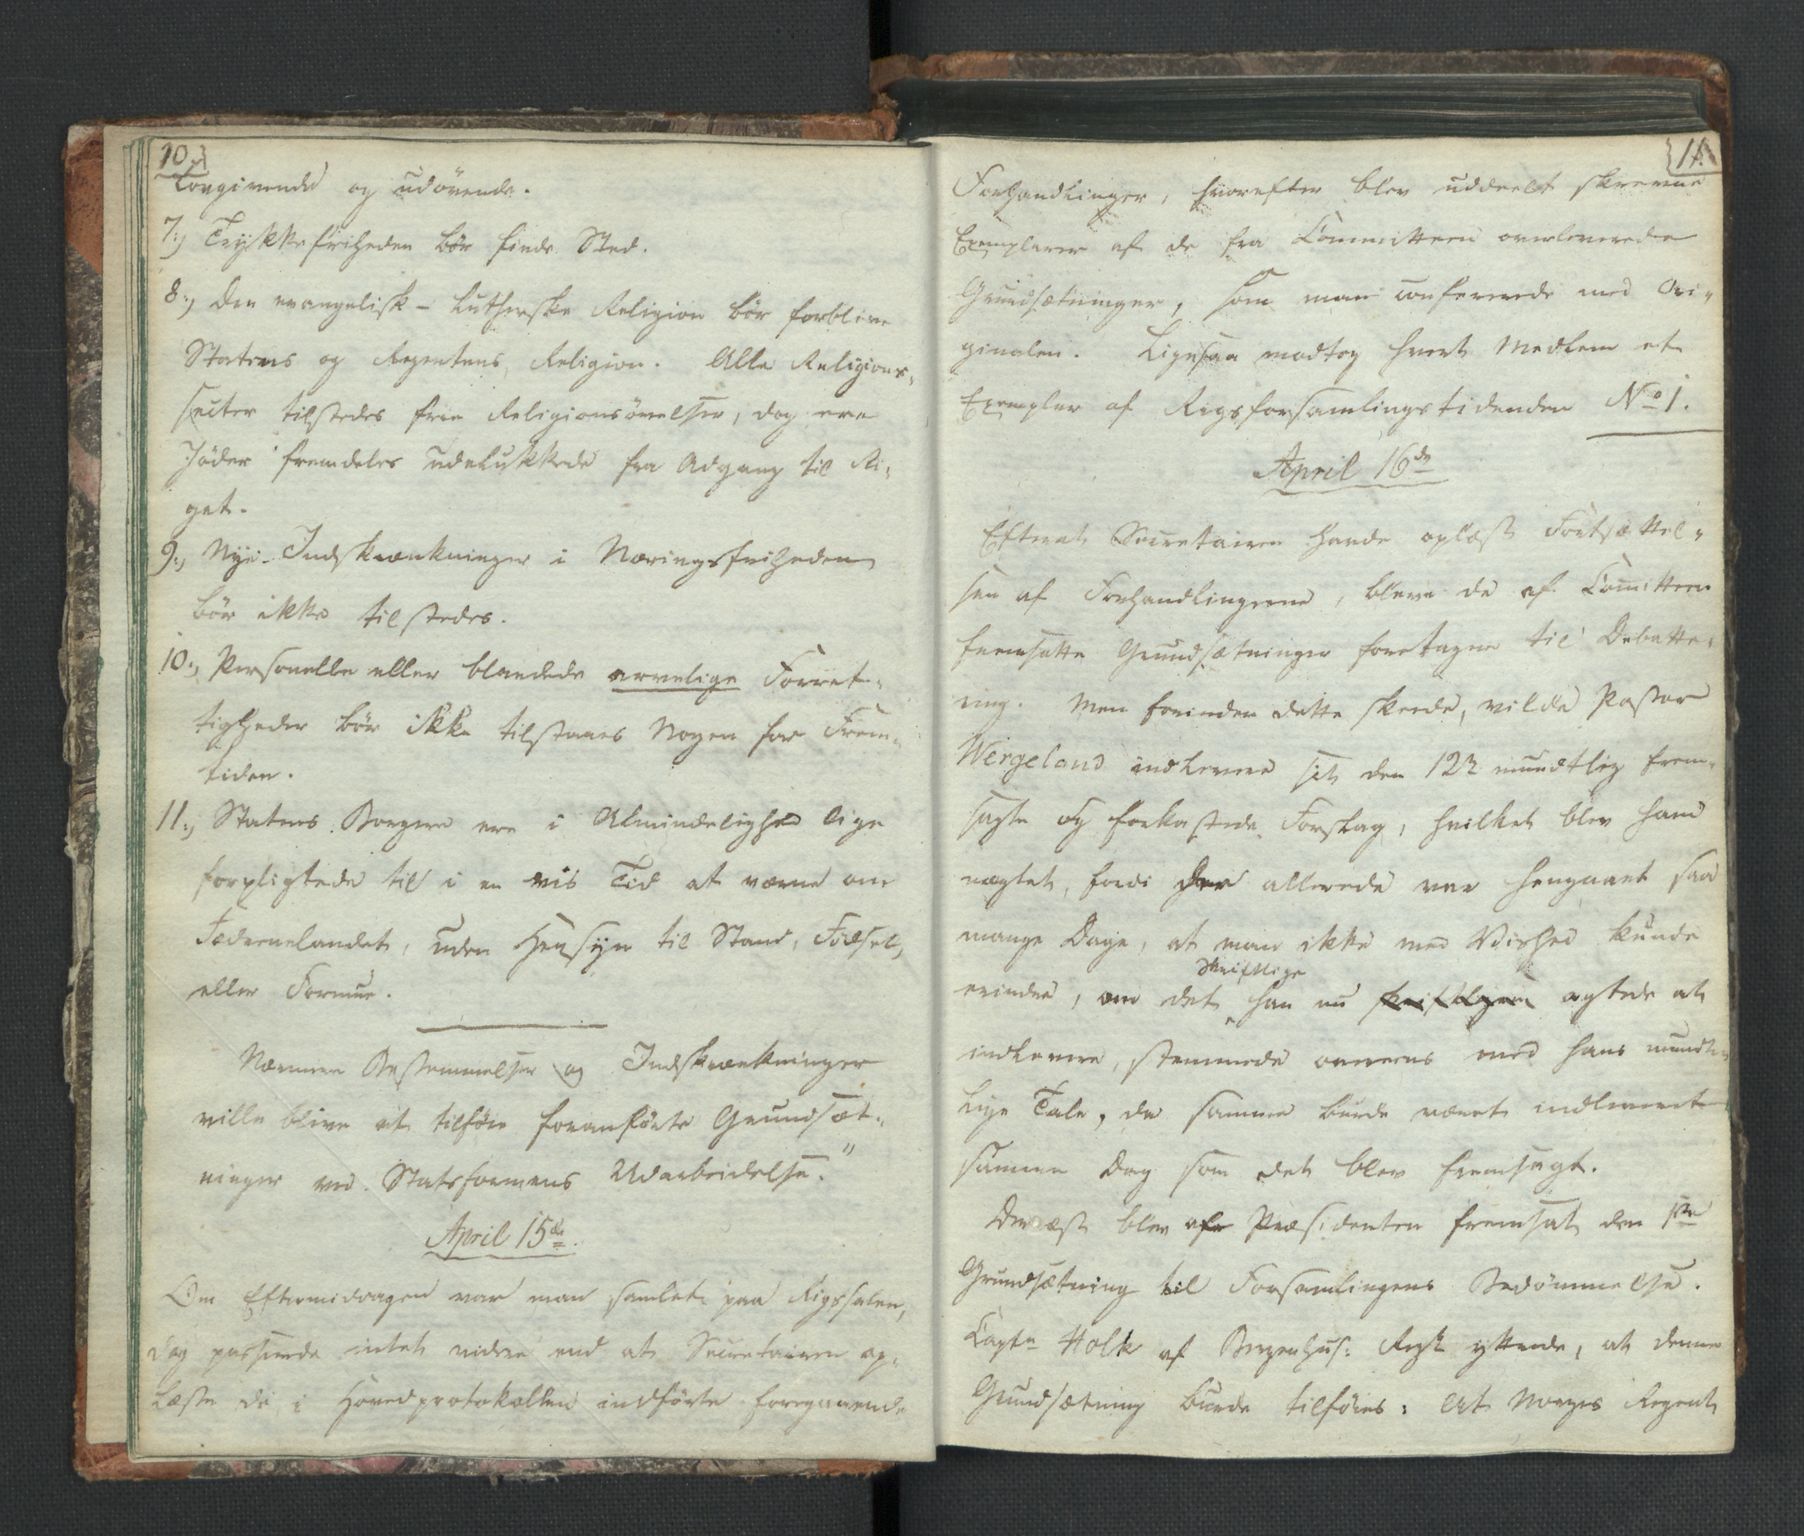 10.
Lovgivende og udøvende.
7:, Trykkefriheden bør finde Sted.
8:, Den evangelisk-lutherske Religion bør forblive
Statens og Regentens Religion. Alle Religions-
secter tilstedes frie Religionsøvelser, dog ere
Jøder fremdeles udelukkede fra Adgang til Ri-
get.
9:, Nye Indskrænkninger i Næringsfriheden
bør ikke tilstedes.
10:, Personelle eller blandede arvelige Forret-
tigheder bør ikke tilstaaes Nogen for Frem-
tiden.
11:, Statens Borgere ere i Almindelighed lige
forpligtede til i en vis Tid at værne om
Fædrenelandet, uden Hensyn til Stand, Fødsel,
eller Formue.
Nærmere Bestemmelser og Indskrænkninger
ville blive at tilføie foranførte Grundsæt-
ninger ved Statsformens Udarbeidelse."
April 15de.
Om Eftermiddagen var man samlet paa Rigssalen,
dog passerede intet videre end at Secretairen op-
læste de i Hovedprotokollen indførte foregaaende
11.
Forhandlinger, hvorefter blev uddeelt skrevne
Exemplarer af de fra Committeen overleverede
Grundsætninger, som man confererede med Ori-
ginalen. Ligesaa modtog hvert Medlem et
Exemplar af Rigsforsamlingstidenden No 1.
April 16de
Efterat Secretairen havde oplæst Fortsættel-
sen af Forhandlingerne, bleve de af Comitteen
fremsatte Grundsætninger foretagne til Debatte-
ring. Men forinden dette skeede, vilde Pastor
Wergeland indlevere sit den 12te mundtlig frem-
sagte og forkastede Forslag, hvilket blev ham
nægtet, fordi der allerede var hengaaet saa
mange Dage, at man ikke med Vished kunde
erindre, om det skriftlige han nu agtede at
indlevere, stemmede overeens med hans mundt-
lige Tale, da samme burde været indleveret
samme Dag som det blev fremsagt.
Dernæst blev af Præsidenten fremsat den 1ste
Grundsætning til Forsamlingens Bedømmelse.
Captn Holk af Bergenhus: Regt yttrede, at denne
Grundsætning burde tilføies: At Norges Regent